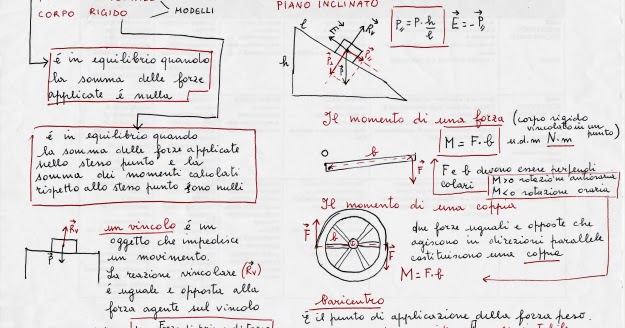 CORPO RIGIDO
MODELLI
è in equilibrio quando
la somma delle forze
applicate è nulla
è in equilibrio quando
la somma delle forze applicate
nello stesso punto e la
somma dei momenti calcolati
rispetto allo stesso punto sono nulli
un vincolo è un
oggetto che impedisce
un movimento.
La reazione vincolare (Rv)
è uguale e opposta alla
forza agente sul vincolo
Rv
P
PIANO INCLINATO
l
h
Rv
P
P∥ = P·h/l
E = -P∥
Il momento di una forza (corpo rigido
vincolato in un
punto)
M = F·b
u.d.m N·m
O
b
F
F e b devono essere perpendi
colari
M>0 rotazione antioraria
M<0 rotazione oraria
Il momento di una coppia
F
b
F
due forze uguali e opposte che
agiscono in direzioni parallele
costituiscono una coppia
M = F·b
Baricentro
È il punto di applicazione della forza peso.